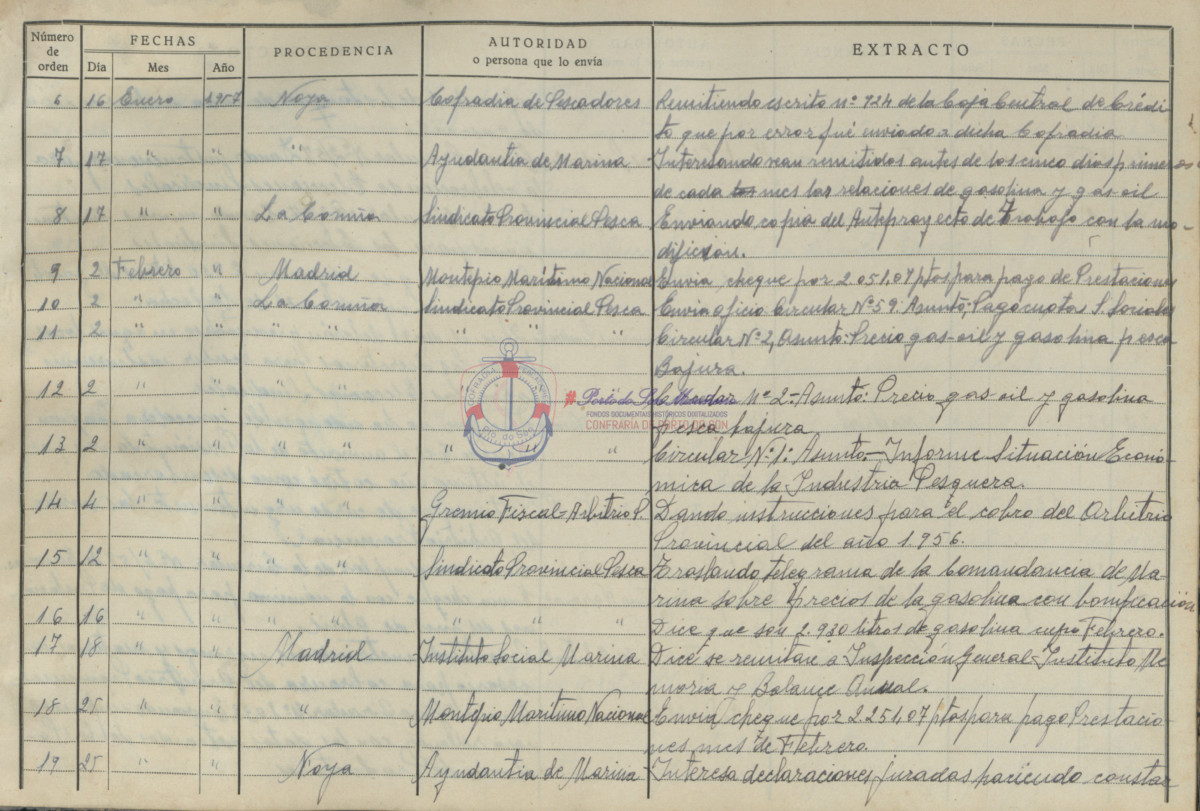 Número de orden FECHAS PROCEDENCIA AUTORIDAD o persona que lo envía EXTRACTO
Día Mes Año
6 16 Enero 1957 Noya Cofradia de Pescadores Remitiendo escrito nº 924 de la Caja Central de Crédi
to que por error fué enviado a dicha Cofradia
7 17 " " " Ayudantia de Marina Interesando sean remitidos antes de los cinco dias primeros
de cada mes las relaciones de gasolina y gas-oil
8 17 " " La Coruña Sindicato Provincial Pesca Enviando copia del Anteproyecto de Trabajo con la mo-
dificción.
9 2 Febrero " Madrid Montepio Marítimo Nacional Envia cheque por 2.051,07 ptas para pago de Prestaciones
10 2 " " La Coruña Sindicato Provincial Pesca Envia oficio Circular Nº 59. Asunto: Pago cuotas S. Sociales
11 2 " " " " " Circular Nº 2, Asunto: Precio gas-oil y gasolina pesca
Bajura.
12 2 " Circular Nº 2 - Asunto: Precio gas-oil y gasolina
pesca bajura
13 2 " " " " " " Circular Nº 1: Asunto.- Informe Situación Econó-
mica de la Industria Pesquera.
14 4 " " " " Gremio Fiscal-Arbitrio P. Dando instrucciones para el cobro del Arbitrio
Provincial del año 1.956.
15 12 " " " " Sindicato Provincial Pesca Trasladando telegrama de la Comandancia de Ma-
rina sobre precios de la gasolina con bonificación
16 16 " " " " " " Dice que son 2.930 litros de gasolina cupo Febrero.
17 18 " " Madrid Instituto Social Marina Dice se remitan a Inspección General-Instituto Me
moria y Balance Anual.
18 25 " " " Montepio Marítimo Nacional Envia cheque por 2.251,07 ptas para pago Prestacio-
nes mes de Febrero.
19 25 " " Noya Ayudantia de Marina Interesa declaraciones juradas haciendo constar
COFRADIA PESCADORES
Pto. do Son
#Porto do Son
FONDOS DOCUMENTAIS HISTÓRICOS DIGITALIZADOS
CONFRARÍA DE PORTO DO SON